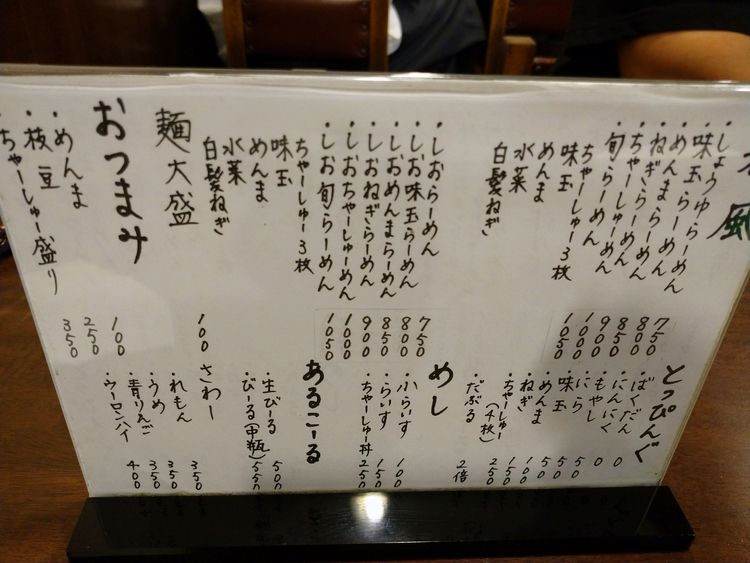 風
・しょうゆらーめん 750
・味玉らーめん 800
・めんまらーめん 850
・ねぎらーめん 900
・ちゃーしゅーらーめん 1000
・旬らーめん 1050
ちゃーしゅー3枚
味玉
めんま
水菜
白髪ねぎ
・しおらーめん 750
・しお味玉らーめん 800
・しおめんまらーめん 850
・しおねぎらーめん 900
・しおちゃーしゅーめん 1000
・しお旬らーめん 1050
ちゃーしゅー3枚
味玉
めんま
水菜
白髪ねぎ
麺大盛 100
おつまみ
・めんま 100
・枝豆 250
・ちゃーしゅー盛り 350
とっぴんぐ
・ばくだん 0
・にんにく 0
・もやし 50
・にら 50
・味玉 50
・めんま 100
・ねぎ 150
・ちゃーしゅー(4枚) 250
・だぶる 2倍
めし
・小らいす 100
・らいす 150
・ちゃーしゅー丼 250
あるこーる
・生びーる 500
・びーる(中瓶) 550
さわー
・れもん 350
・うめ 350
・青りんご 350
・ウーロンハイ 400